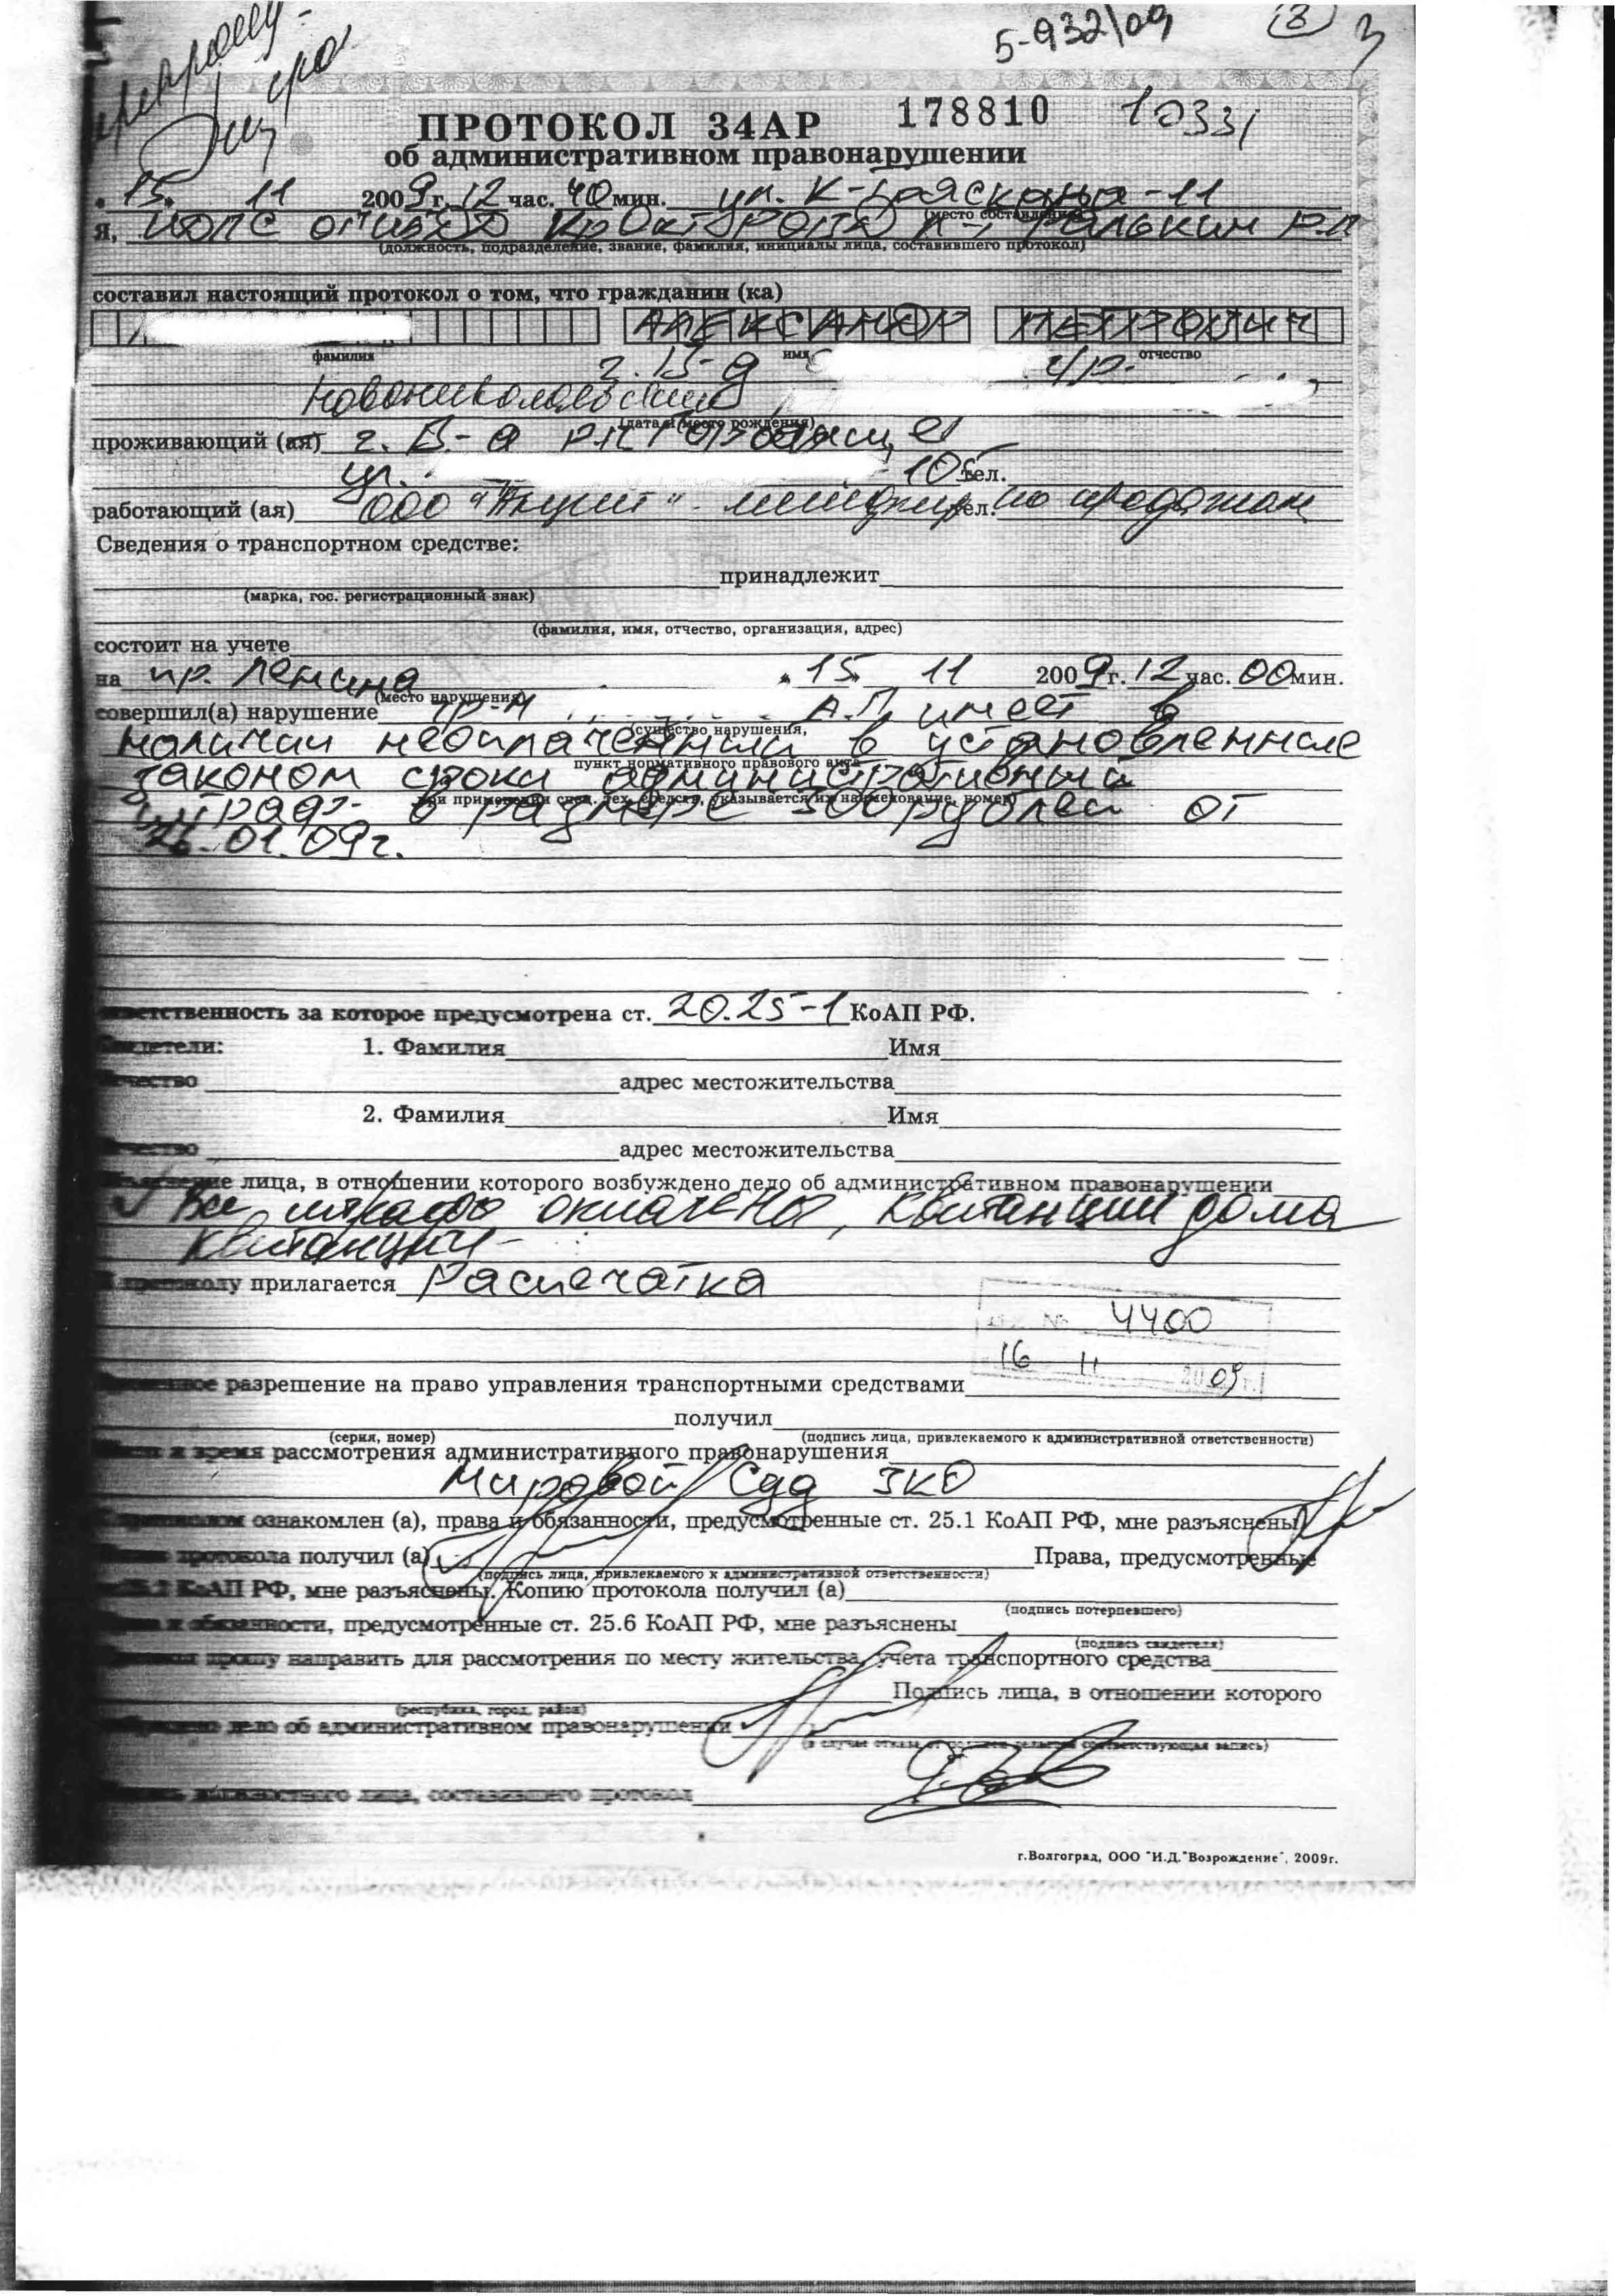 5-932/09
3 3
ПРОТОКОЛ 34АР 178810
об административном правонарушении
15. 11 2009г. 12 час. 40 мин. ул. -11
(место составления)
Я, ИДПС
(должность, подразделение, звание, фамилия, инициалы лица, составившего протокол)
составил настоящий протокол о том, что гражданин (ка)
АЛЕКСАНДР ПЕТРОВИЧ
фамилия имя отчество
г. В-д г/р.
Новониколаевский
(дата и место рождения)
проживающий (ая) г. В-д р.п. Городище
ул. 105 тел.
работающий (ая) ООО "Акцент" - менеджер тел. по продажам
Сведения о транспортном средстве:
принадлежит
(марка, гос. регистрационный знак)
(фамилия, имя, отчество, организация, адрес)
состоит на учете
на пр. Ленина 15. 11 2009г. 12 час. 00 мин.
(место нарушения)
совершил(а) нарушение гр-н А.П. имеет в
(существо нарушения,
наличии неоплаченный в установленные
пункт нормативного правового акта
законом сроки административный
при применении спец. тех. средств, указывается их наименование, номер)
штраф в размере 300 рублей от
26.01.09г.
ответственность за которое предусмотрена ст. 20.25-1 КоАП РФ.
Свидетели: 1. Фамилия Имя
Отчество адрес местожительства
2. Фамилия Имя
Отчество адрес местожительства
Объяснение лица, в отношении которого возбуждено дело об административном правонарушении
Все штрафы оплачены, квитанции дома
квитанции
К протоколу прилагается Распечатка
№ 4400
16 11 2009г.
разрешение на право управления транспортными средствами
получил
(серия, номер) (подпись лица, привлекаемого к административной ответственности)
Место и время рассмотрения административного правонарушения
Мировой Суд ЗКО
С протоколом ознакомлен (а), права и обязанности, предусмотренные ст. 25.1 КоАП РФ, мне разъяснены
Копию протокола получил (а) Права, предусмотренные
(подпись лица, привлекаемого к административной ответственности)
ст. 25.2 КоАП РФ, мне разъяснены. Копию протокола получил (а)
(подпись потерпевшего)
Права и обязанности, предусмотренные ст. 25.6 КоАП РФ, мне разъяснены
(подпись свидетеля)
прошу направить для рассмотрения по месту жительства, учета транспортного средства
Подпись лица, в отношении которого
(республика, город, район)
возбуждено дело об административном правонарушении
(в случае отказа от подписи делается соответствующая запись)
Подпись должностного лица, составившего протокол
г.Волгоград, ООО "И.Д."Возрождение", 2009г.